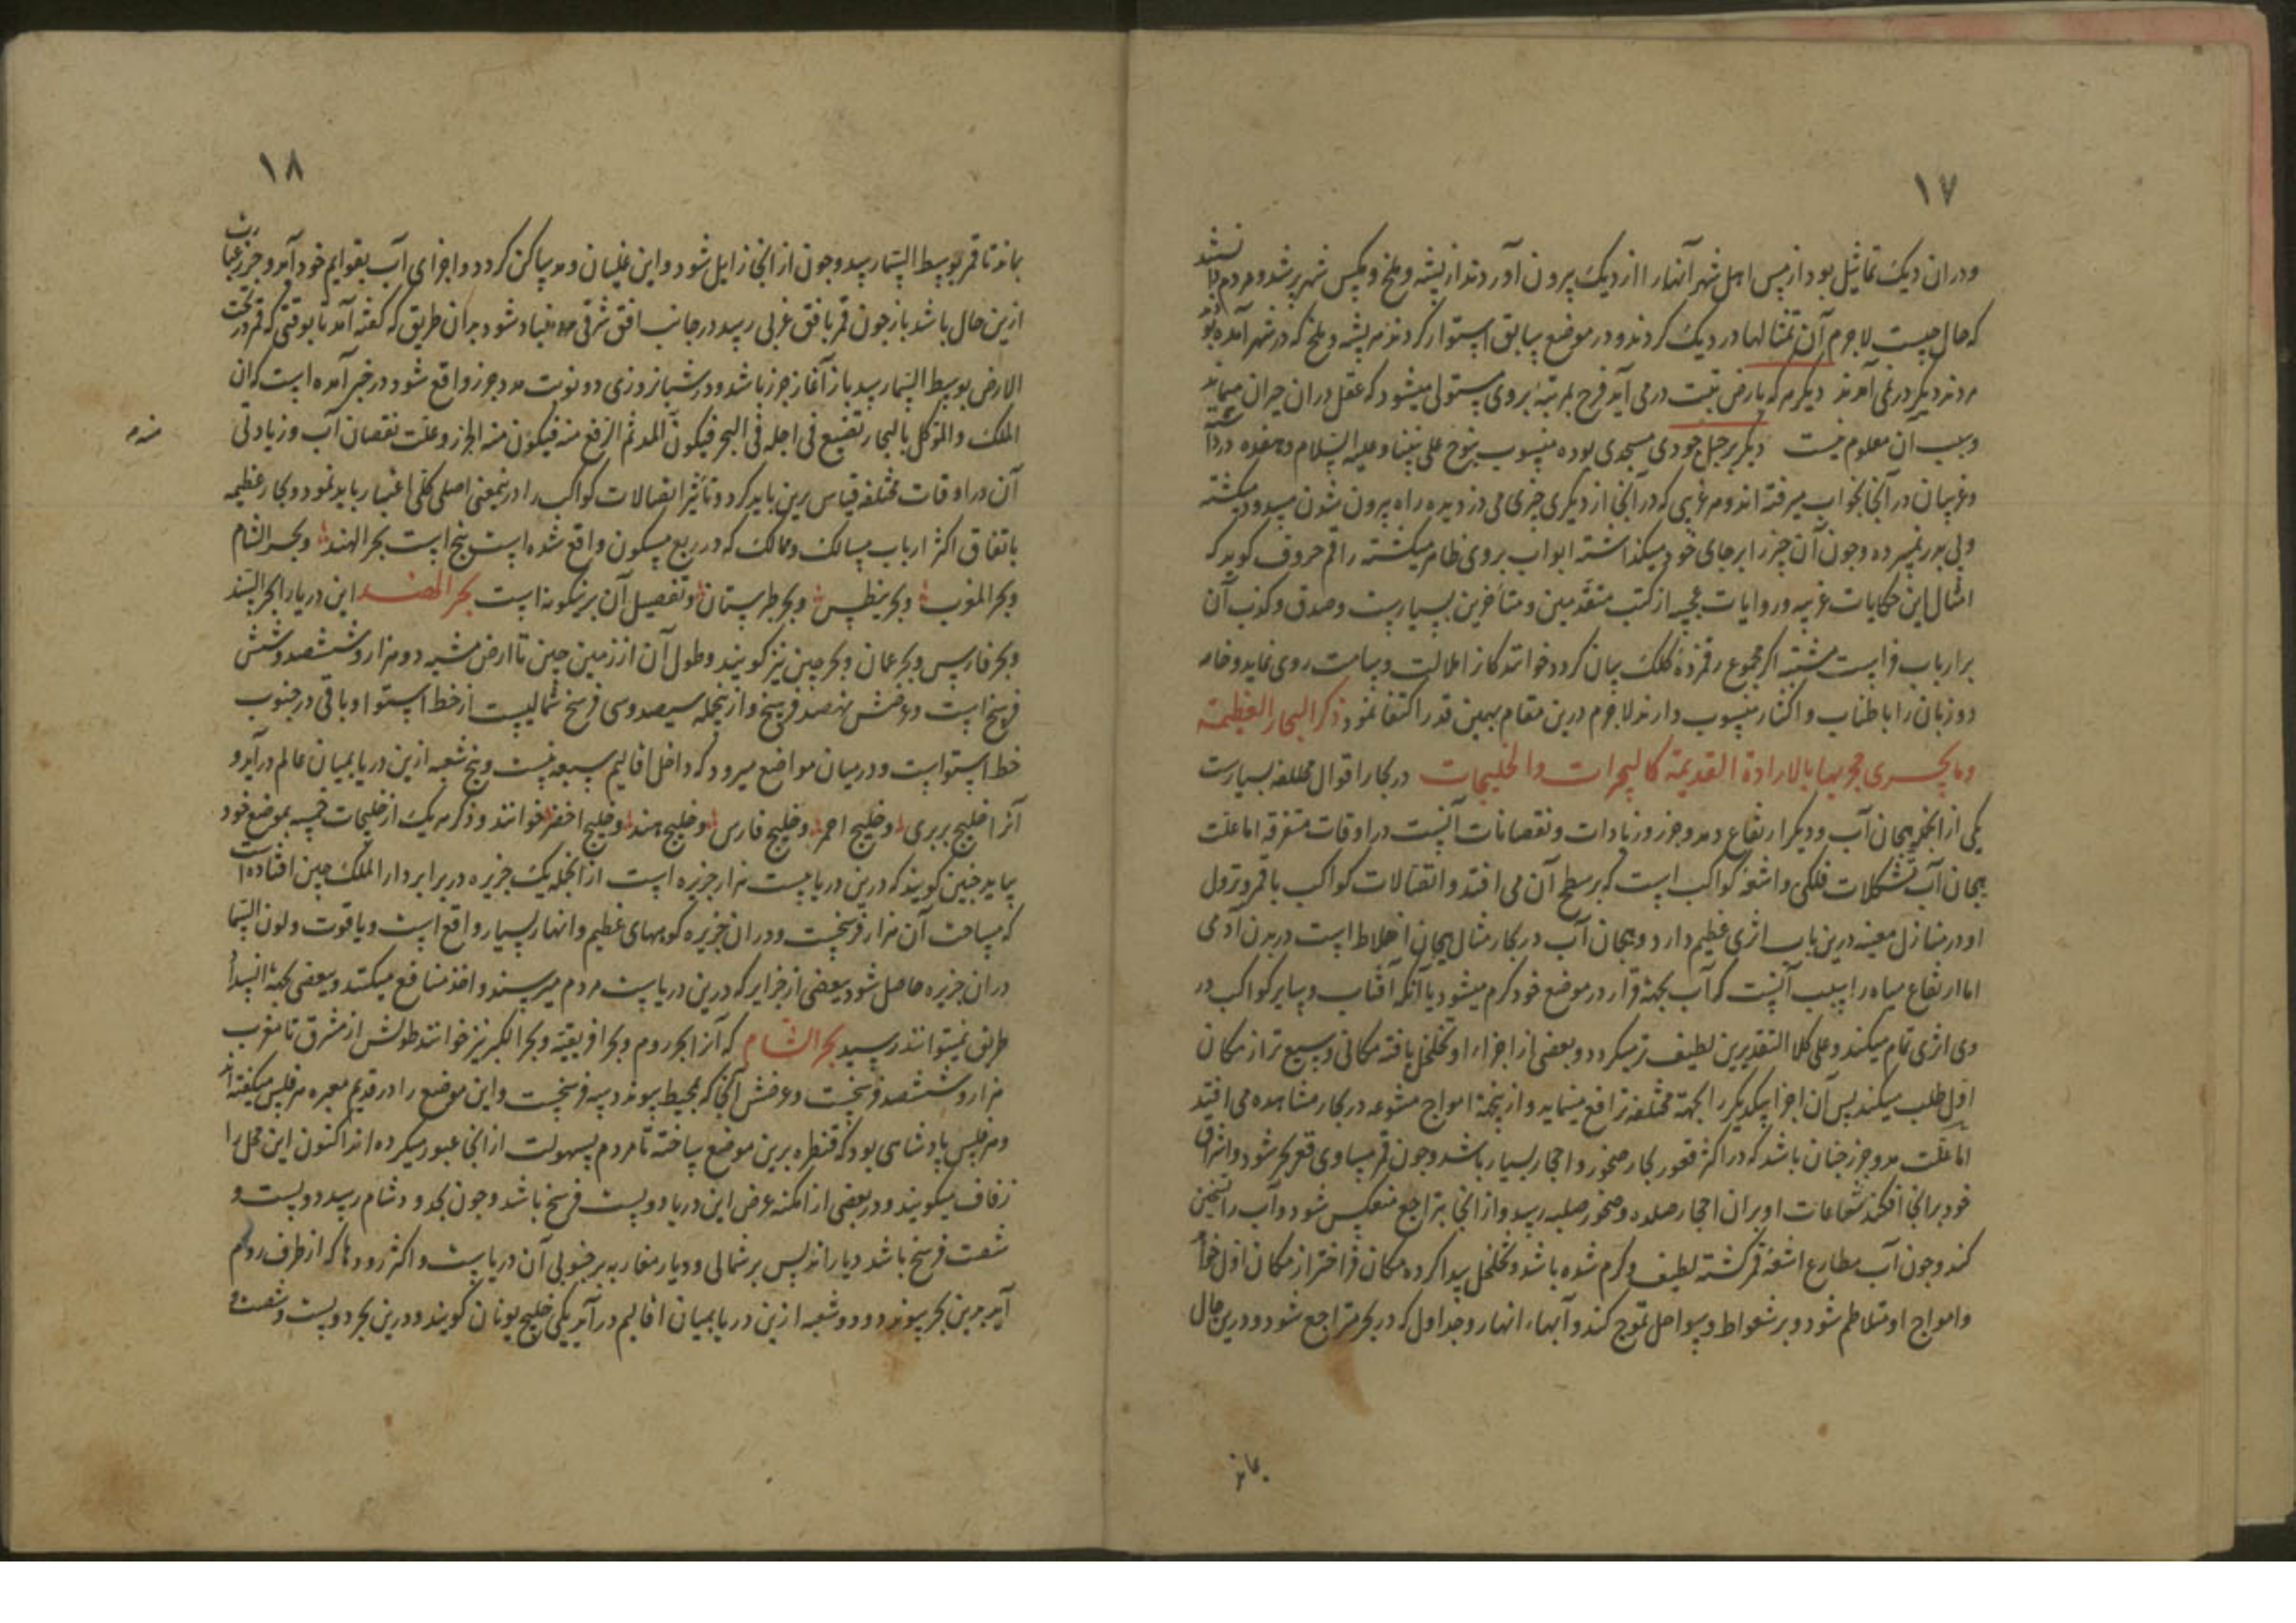 ١٧
ودران دیک تماثیل بود ازپس اهل شهر آنهارا از دیک بیرون آوردند از پشه وملخ ومکس شهر پر شد ومردم
که حال چیست لاجرم آن تمثالها در دیک کردند ودر موضع سابق استوار کردند هر پشه وملخ که در شهر آمده
مردند دیکر در نمی آمدند دیکر هرکه بارض تبت درمی آید فرح بمرتبهٔ بروی مستولی میشود که عقل دران حیران میماند
وسبب آن معلوم نیست دیکر بر جبل جودی مسجدی بوده منسوب بنوح علی نبینا وعلیه السلام
وغریبان در آنجا بخواب میرفته اند وهر غریبی که در آنجا از دیکری چیزی می دزدیده راه بیرون شدن
ولی بدر نمیبرده وچون آن چیز را برجای خود میکذاشته ابواب بروی ظاهر میکشته راقم حروف کوید که
امثال این حکایات غریبه وروایات عجیبه از کتب متقدمین ومتاخرین بسیارست وصدق وکذب آن
بر ارباب فراست مشتبه اگر مجموع رقمزدهٔ کلک بیان کردد خوانندکانرا ملالت وسامت روی نماید وخامه
دو زبان را باطناب واکثار منسوب دارند لاجرم درین مقام بهمین قدر اکتفا نمود ذکر البحار العظیمة
وما یجری مجریها بالارادة القدیمة کالبحیرات والخلیجات در بحار اقوال مختلفه بسیارست
یکی از آنجمله هیجان آب ودیکر ارتفاع ومد وجزر وزیادات ونقصانات آنست در اوقات متفرقه اما علت
هیجان آب تشکلات فلکی واشعهٔ کواکب است که بر سطح آن می افتد واتصالات کواکب با قمر ونزول
او در منازل معینه درین باب اثری عظیم دارد وهیجان آب در بحار مثال هیجان اخلاط است در بدن آدمی
اما ارتفاع میاه را سبب آنست که آب بجهة قرار در موضع خود کرم میشود یا آنکه آفتاب وسایر کواکب در
وی اثری تمام میکند وعلی کلا التقدیرین لطیف تر میکردد وبعضی از اجزاء او تخلخل یافته مکانی وسیع تر از مکان
اول طلب میکند پس آن اجزا یکدیکر را بجهة مختلفه تدافع مینماید وازینجهة امواج متنوعه در بحار مشاهده می افتد
اما علت مد وجزر چنان باشد که در اکثر قعور بحار صخور واحجار بسیار باشد وچون قمر مساوی قعر بحر شود واشراق
خود برانجا افکند شعاعات او بران احجار صلده وصخور صلبه رسد واز انجا بتراجع منعکس شود وآب را تسخین
کند وچون آب مطارح اشعهٔ قمر کشته لطیف وکرم شده باشد وتخلخل پیدا کرده مکان فراختر از مکان اول خواهد
وامواج او متلاطم شود وبر شطوط وسواحل تموج کند وآبهاء انهار وجداول که در بحر متراجع شود ودرین حال
بماند
١٨
بماند تا قمر بوسط السما رسد وچون از انجا زایل شود واین غلیان ومد ساکن کردد واجزای آب بقوام خود آمد وجزر عبارت
ازین حال باشد باز چون قمر بافق غربی رسد در جانب افق شرقی مد بنیاد شود بدان طریق که کفته آمد تا بوقتی که قمر در تحت
الارض بوسط السما رسد باز آغاز جزر باشد ودر شبانروزی دو نوبت مد وجزر واقع شود در خبر آمده است که ان
الملک والموکل بالبحار تقضع فی اجله فی البحر فیکون المد ثم الرفع منه فیکون منه الجزر وعلت نقصان آب وزیادتی
آن در اوقات مختلفه قیاس برین باید کرد وتاثیر اتصالات کواکب را درینمعنی اصلی کلی اعتبار باید نمود وبحار عظیمه
باتفاق اکثر ارباب مسالک وممالک که در ربع مسکون واقع شده است پنج است بحر الهند وبحر الشام
وبحر المغرب وبحر بنطس وبحر طبرستان وتفصیل آن برینکونه است بحر الهند این دریا را بحر السند
وبحر فارس وبحر عمان وبحر چین نیز کویند وطول آن از زمین چین تا ارض حبشه دو هزار وششصد وشش
فرسخ است وعرضش نهصد فرسخ وازینجمله سیصد وسی فرسخ شمالیست از خط استوا وباقی در جنوب
خط استواست ودر میان مواضع میرود که داخل اقالیم سبعه نیست وپنج شعبه ازین دریا بمیان عالم درآید و
آنرا خلیج بربری وخلیج احمر وخلیج فارس وخلیج هند وخلیج اخضر خوانند وذکر هر یک از خلیجات خمسه بموضع خود
بیاید چنین کویند که درین دریا بیست هزار جزیره است ازانجمله یک جزیره در برابر دار الملک چین افتاده است
که مسافت آن هزار فرسخست ودران جزیره کوههای عظیم وانهار بسیار واقع است ویاقوت ولون السما
دران جزیره حاصل شود بعضی از جزایر که درین دریاست مردم میرسند واخذ منافع میکنند وبعضی بجهة انسداد
طریق نمیتوانند رسید بحر الشام که آنرا بحر روم وبحر افریقیه وبحر الکبر نیز خوانند طولش از مشرق تا مغرب
هزار وششصد فرسخست وعرضش آنجا که بمحیط پیوندد سه فرسخست واین موضع را در قدیم معبره هرقلیس میکفته اند
وهرقلیس پادشاهی بود که قنطره برین موضع ساخته تا مردم بسهولت از انجا عبور میکرده اند اکنون این محل را
زقاق میکویند ودر بعضی از امکنه عرض این دریا دویست فرسخ باشد وچون بحدود شام رسد دویست و
شصت فرسخ باشد دیار اندلس بر شمالی ودیار مغاربه بر جنوبی آن دریاست واکثر رودها که از طرف روم
آید بدین بحر پیوندد ودو شعبه ازین دریا بمیان اقالیم درآمد یکی خلیج یونان کویند ودرین بحر دویست وشصت و